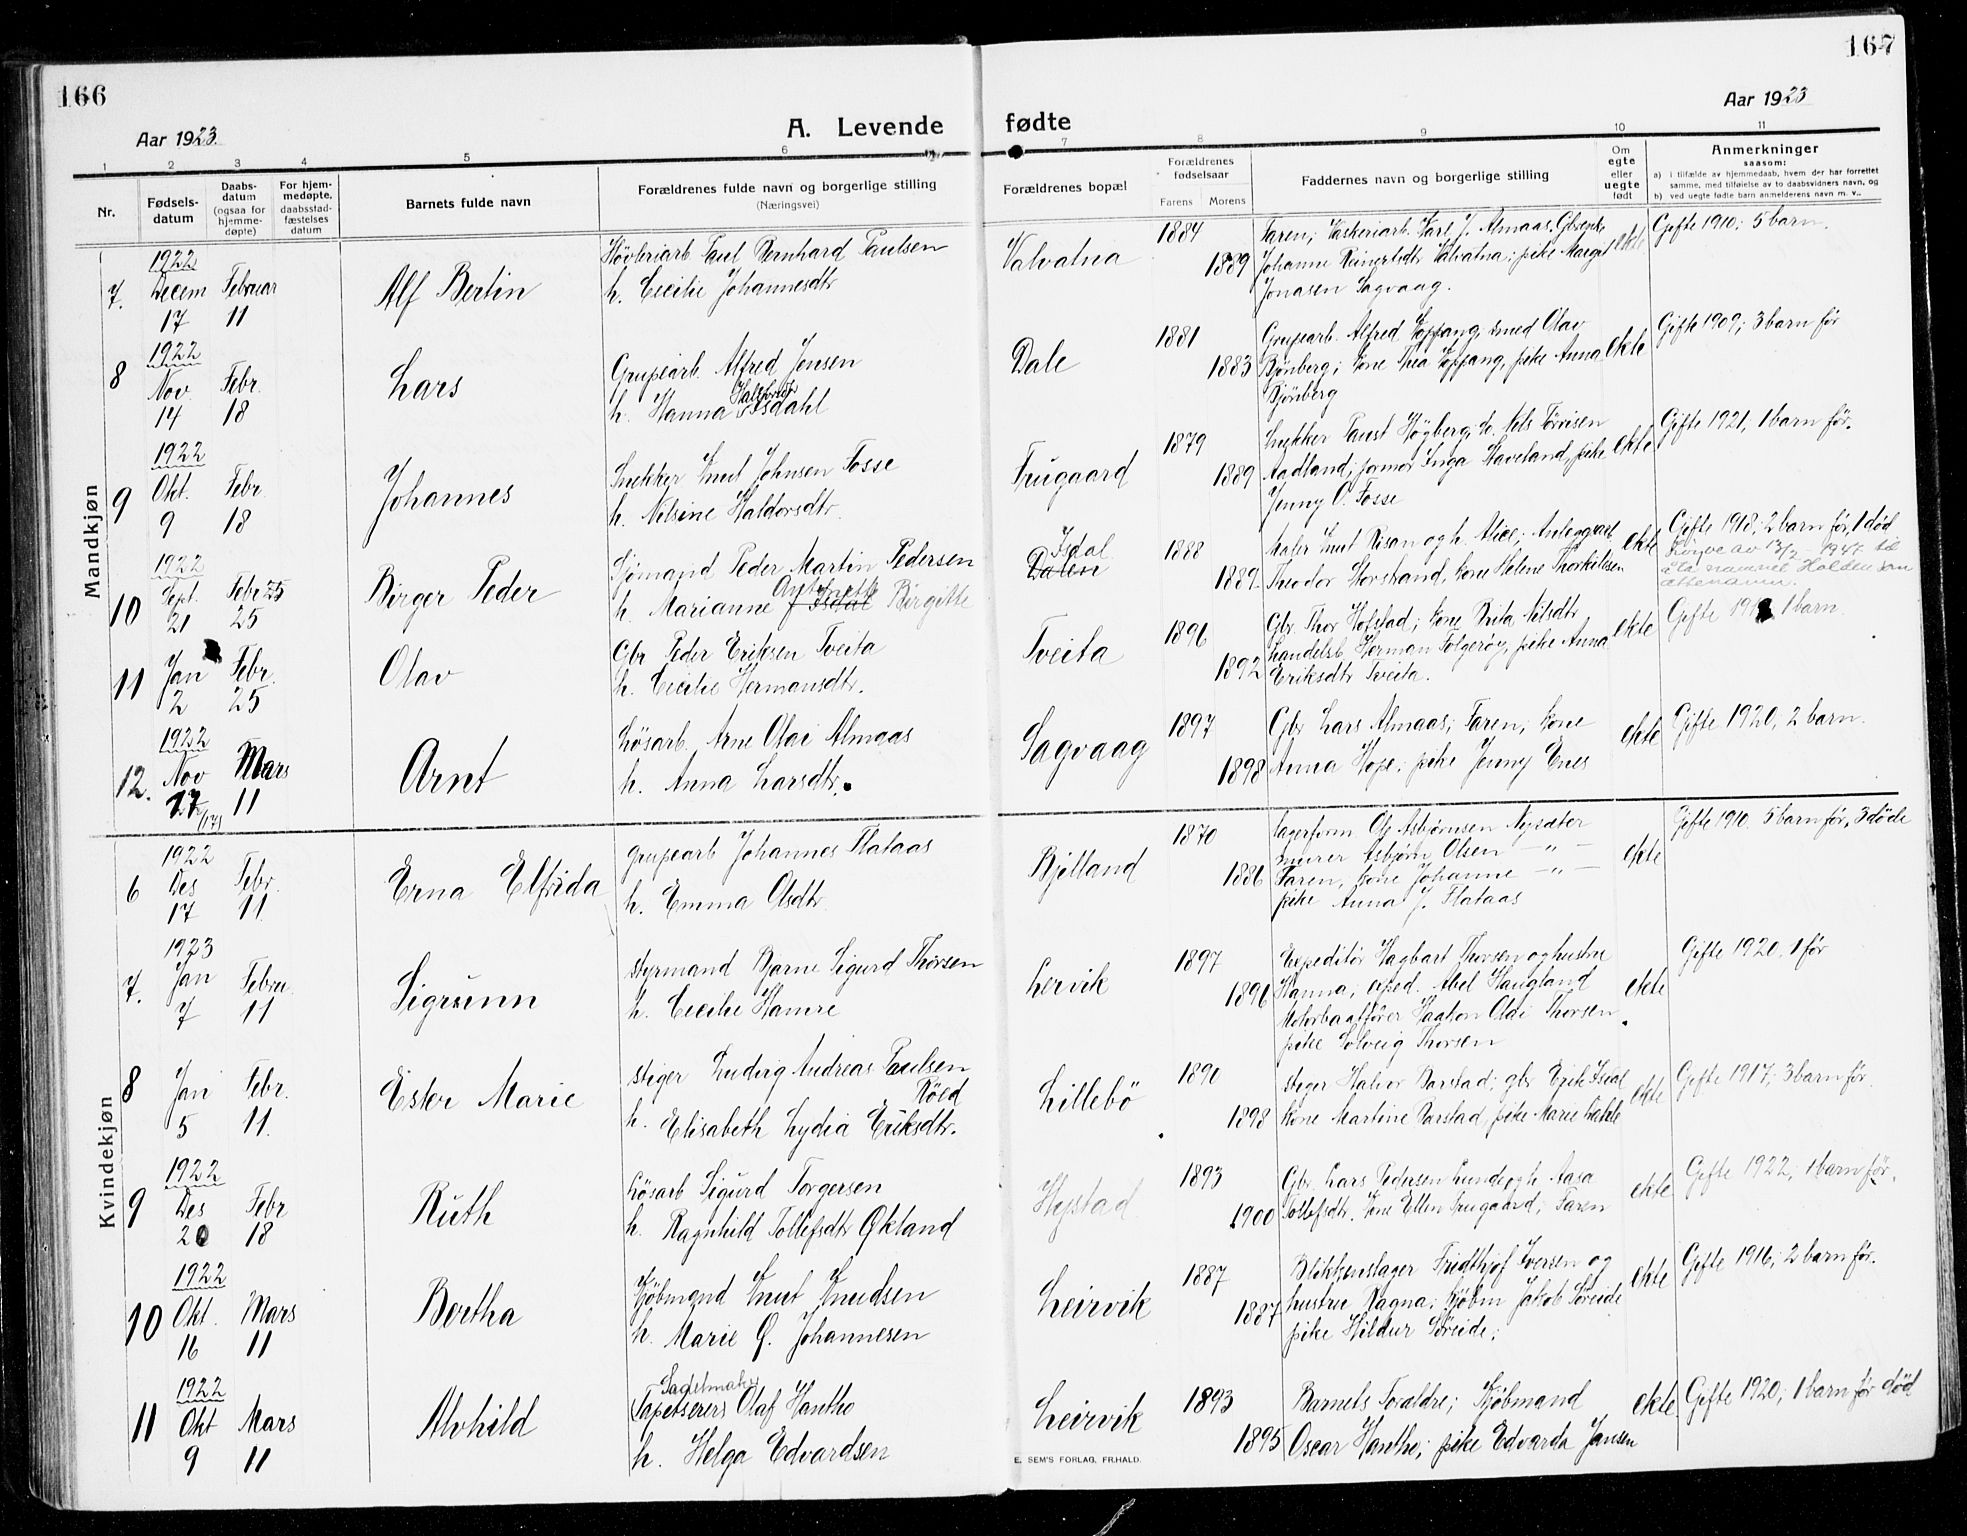 166
167
Aar 1923.
Aar 1923
A. Levende fødte
1 2 3 4 5 6 7 8 9 10 11
Nr.
Fødsels-
datum
Daabs-
datum
(ogsaa for
hjemme-
døpte)
For hjem-
medøpte,
daabsstad-
fæstelses
datum
Barnets fulde navn
Forældrenes fulde navn og borgerlige stilling
(Næringsvei)
Forældrenes bopæl
Forældrenes
fødselsaar
Farens Morens
Faddernes navn og borgerlige stilling
Om
egte
eller
uegte
født
Anmerkninger
saasom:
a) i tilfælde av hjemmedaab, hvem der har forrettet
samme, med tilføielse av to daabsvidners navn, og
b) ved uegte fødte barn anmelderens navn m. v..
Mandkjøn
7. 1922 Decem 17 Februar 11
Alf Bertin
Paul Bernhard Paulsen
h. Cecilie Johannesdtr
Valvatna
1884
1889
Faren; Vaskeriarb. Karl J. Almaas,
Johanne Reinertsdtr Valvatna; pike Margit
Jonasen Sagvaag.
ekte
Gifte 1910; 5 barn.
8 1922 Nov. 14 Febr. 18
Lars
Grupearb. Alfred Jensen
h. Hanna Isdahl
Dale
1881
1883
Grupearb. Alfred Koppang, smed Olav
Bjönberg; kone Thea Koppang, pike Anna
Bjönberg
ekte
Gifte 1909; 3 barn før
9 1922 Okt. 9 Febr. 18
Johannes
Snekker Knut Johnsen Fosse
h. Nilsine Haldorsdtr.
Trugaard
1879
1889
Snekker Faust Högberg,
Aadland; formor Inga Staveland, pike
Jenny O. Fosse
ekte
Gifte 1921, 1 barn før.
10 1922 Sept. 21 Febr. 25 25
Birger Peder
Sjömand Peder Martin Pedersen
Antonette
h. Marianne Isdal Birgitte
Isdal
Dalen
1888
1889.
Maler Knut Risan og h. Alice;
Theodor Storstrand, kone Helene Thorkilsen
ekte
Gifte 1918; 2 barn før, 1 død
av 13/2 - 1947 til
å ta navnet Holden som
ættenavn.
11 Jan 2 Febr. 25
Olav
Gbr Peder Eriksen Tveita
h. Cecilie Hermansdtr.
Tveita
1896
1892
Gbr. Thor Hofstad; kone Brita Nilsdtr
Handelsb. Herman Folgerøy, pike Anna
Eriksdtr Tveita.
ekte
1 barn.
12. 1922 Nov 17 Mars 11
Arnt
Lösarb. Arne Olai Almaas
h. Anna Larsdtr.
Sagvaag
1897
1898
Gbr Lars Almaas; Faren; kone
Anna Hope; pike Jenny Enes
ekte
Gifte 1920, 2 barn.
Kvindekjøn
6 1922 Des 17 Febr. 11
Erna Elfrida
grupearb Johannes Flataas
h. Emma Olsdtr
Bjelland
1870
1886
Lagerform Ole Asbjørnsen Nysæter
murer Asbjørn Olsen — " —
Faren, kone Johanne — " —
pike Anna J. Flataas
ekte
Gifte 1910. 5 barn før, 3 døde
7. 1923 Jan 7 Febru. 11
Sigrunn
styrmand Bjarne Sigurd Thorsen
h. Cecilie Hamre
Lervik
1897
1896
Expeditör Hagbart Thorsen og hustru
Hanna, exped. Abel Haugland
Motorbaatfører Haakon Olai Thorsen
pike Solveig Thorsen
ekte
Gifte 1920, 1 før
8 Jan 5 Febr. 11.
Ester Marie
stiger Ludvig Andreas Paulsen
Röed
h. Elisabeth Lydia Eriksdtr.
Lillebö
1890
1898
stiger Halvor Barstad; gbr Erik Isdal
kone Martine Barstad, pike Marie
ekte
Gifte 1917; 3 barn før.
9 1922 Des 20 Febr 18
Ruth
Lösarb Sigurd Torgersen
h. Ragnhild Tollefsdtr Økland
Hystad
1893
1900
Gbr. Lars Pedersen Lunde og h. Aasa
Tollefsdtr. Kone Ellen Trugaard; Faren
ekte
Gifte 1922; 1 barn før.
10 1922 Okt. 16 Mars 11
Bertha
Kjöbmand Knut Knudsen
h. Marie G. Johannesen
Leirvik
1887
1887
Blikkenslager Fridthjof Iversen og
hustru Ragna; kjöbm Jakob Söreide
pike Hildur Söreide;
ekte
Gifte 1916; 2 barn før.
11 1922 Okt 9 Mars 11
Alvhild
Sadelmaker
(Tapetserer) Olaf Hantho
h. Helga Edvardsen
Leirvik
1893
1895
Barnets Foraldre; Kjöbmand
Oscar Hantho; pike Edvarda Jansen
ekte
Gifte 1920; 1 barn før död
E. SEM'S FORLAG, FR.HALD.